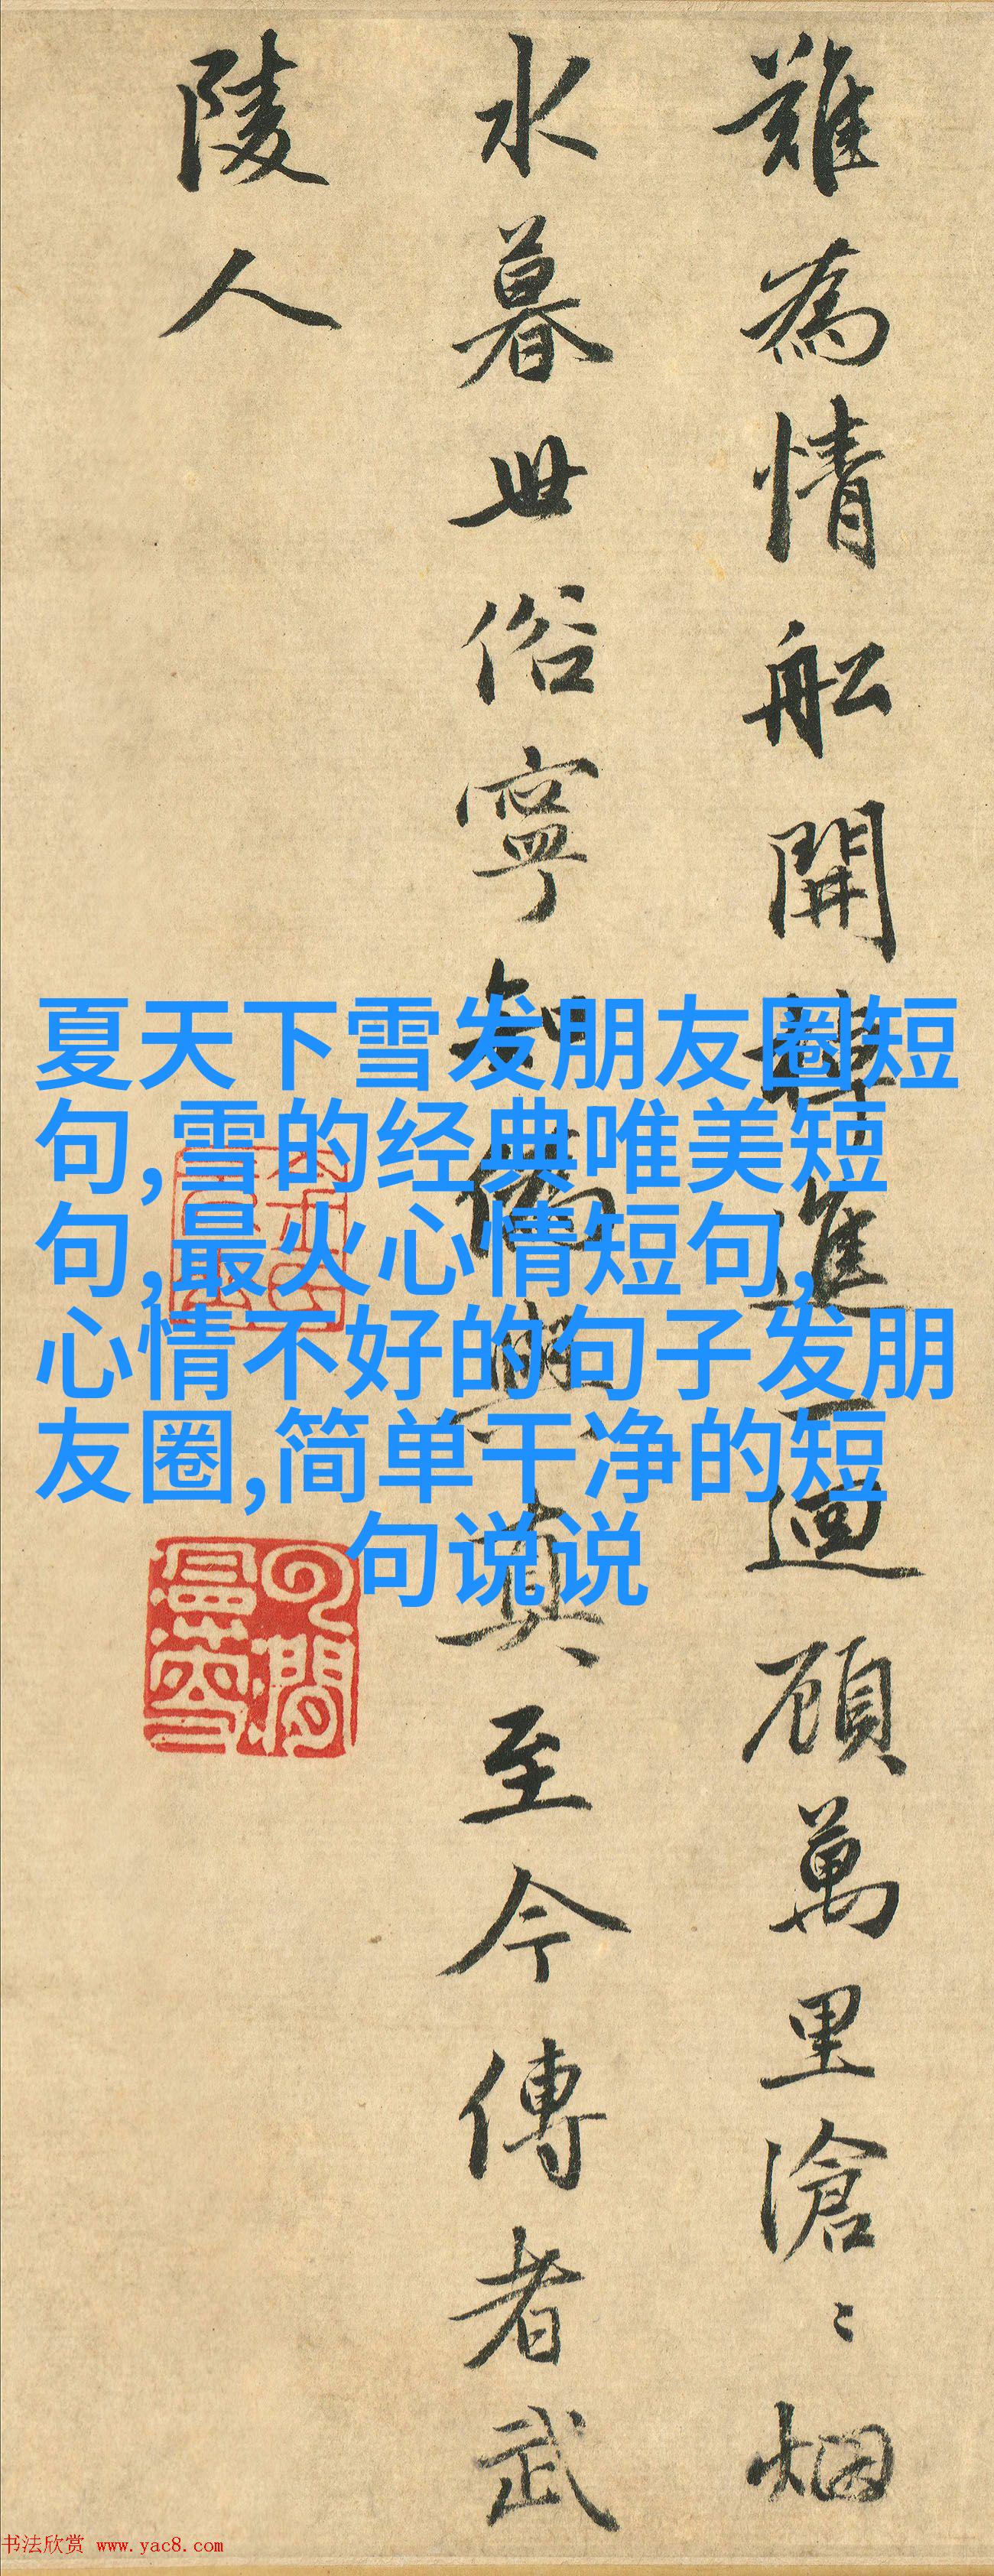 難為情舩開
進迴顧萬里滄〻烟
水暮世俗寧知偽與真至今傳者武
陵人
夏天下雪发朋友圈短
句,雪的经典唯美短
句,最火心情短句,
心情不好的句子发朋
友圈,简单干净的短
句说说
书法欣赏 www.yac8.com